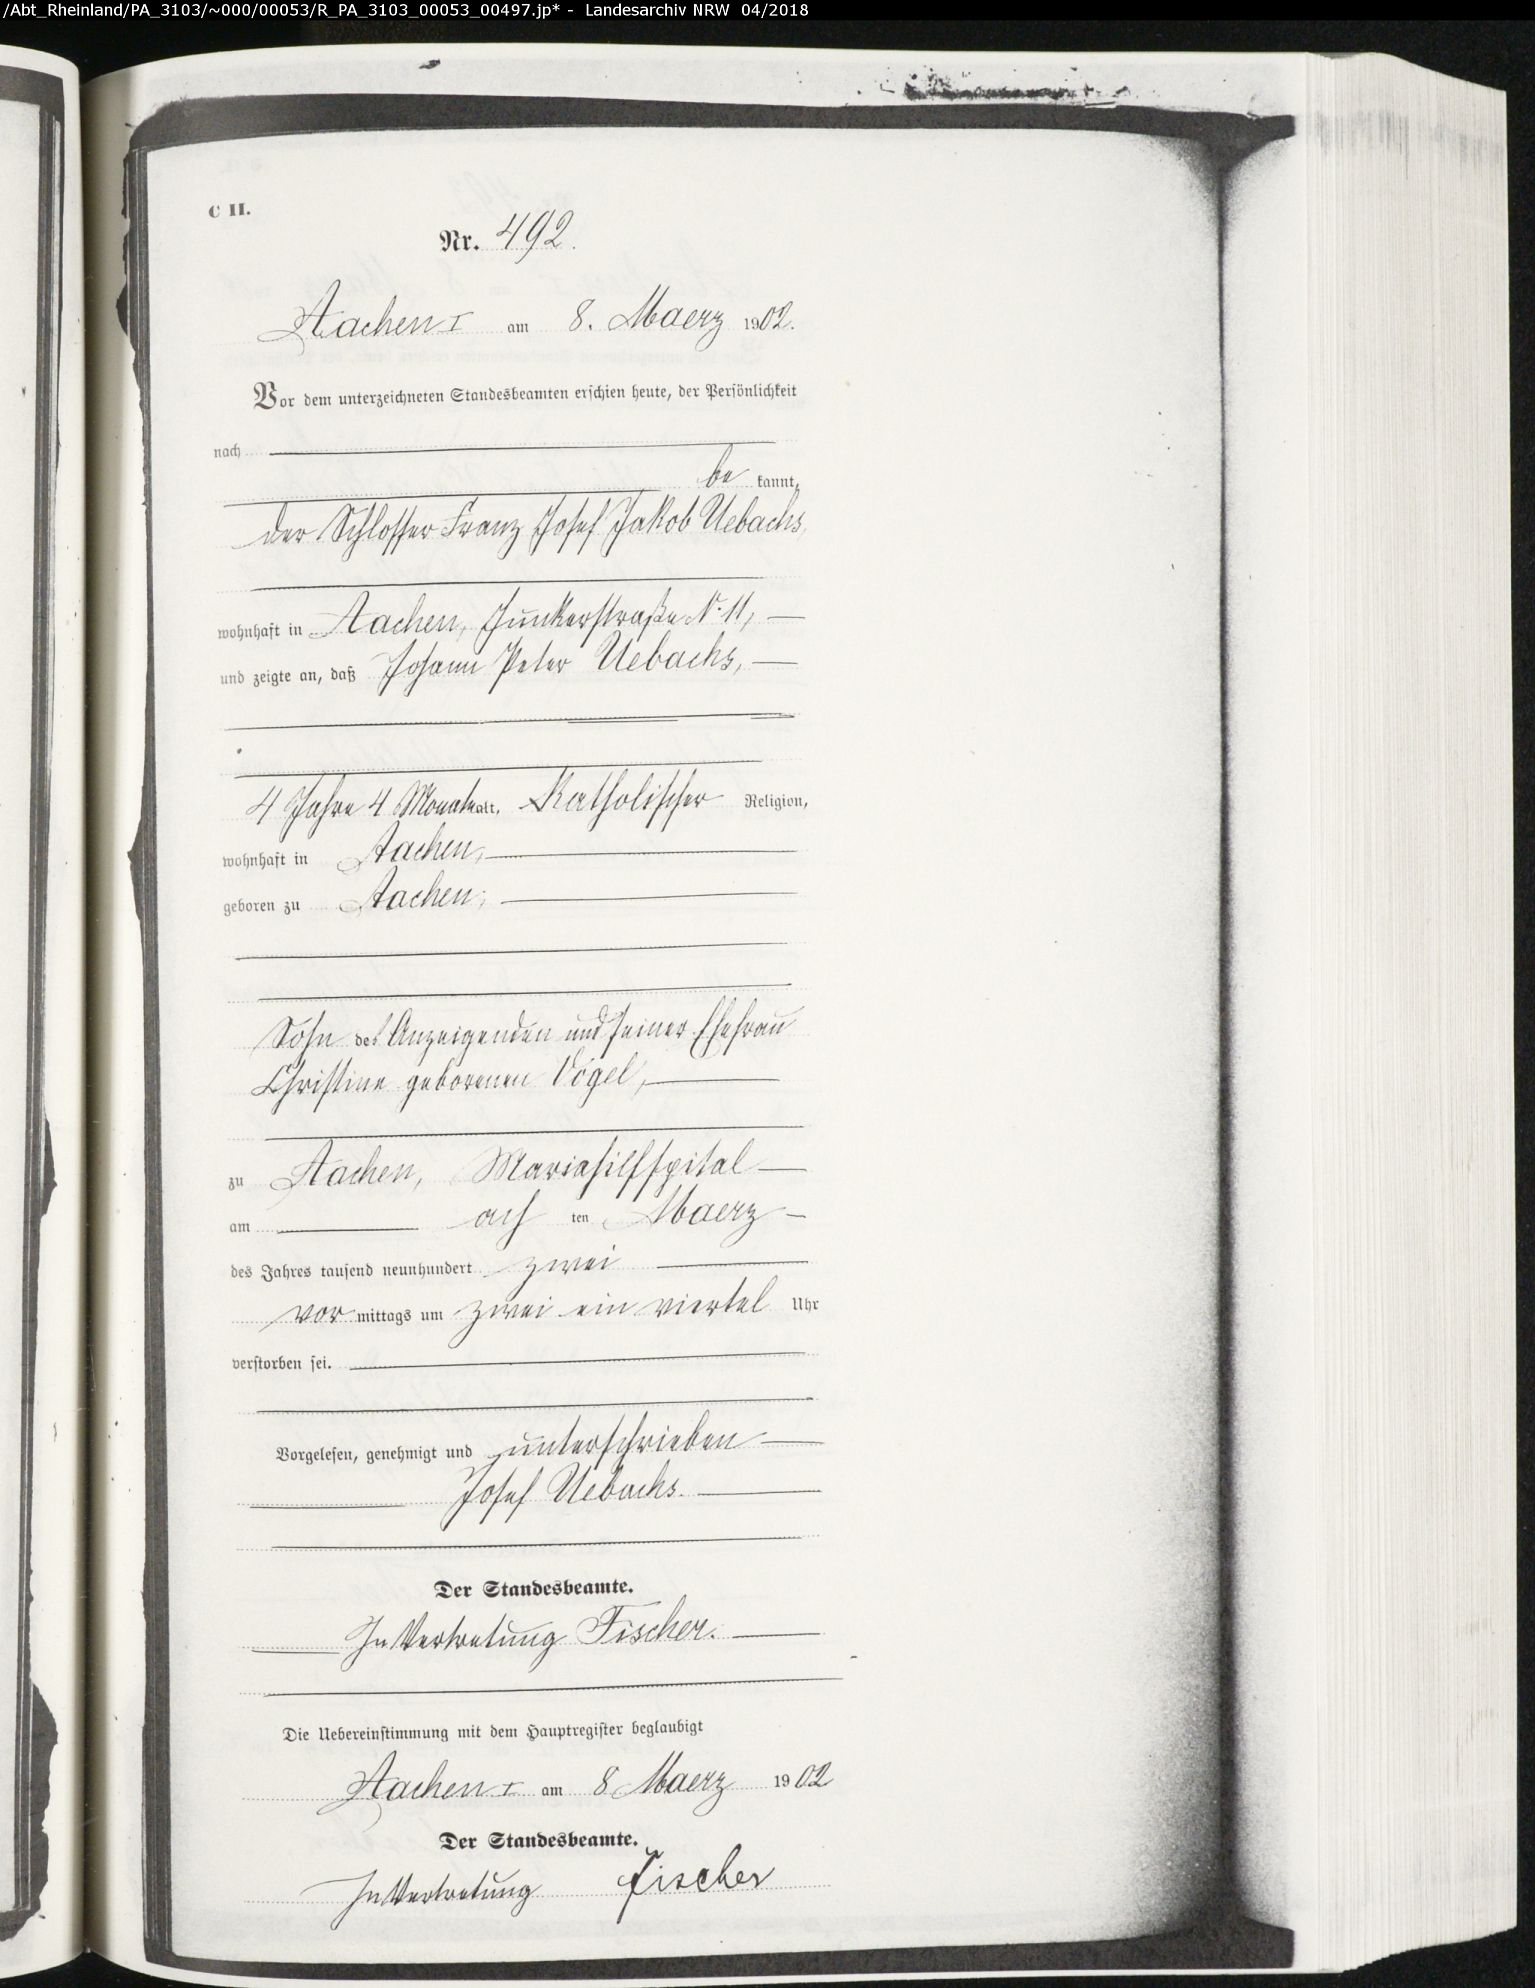 /Abt_Rheinland/PA_3103/~000/00053/R_PA_3103_00053_00497.jp* - Landesarchiv NRW 04/2018
C II.
Nr. 492.
Aachen I am 8. Maerz 1902.
Vor dem unterzeichneten Standesbeamten erschien heute, der Persönlichkeit
nach
be kannt,
der Schlosser Franz Josef Jakob Uebachs,
wohnhaft in Aachen, Junkerstraße N. 11,
und zeigte an, daß Johann Peter Uebachs,
4 Jahre 4 Monate alt, Katholischer Religion,
wohnhaft in Aachen,
geboren zu Aachen,
Sohn des Anzeigenden und seiner Ehefrau
Christine geborenen Vogel,
zu Aachen, Mariahilfspital
am ach ten Maerz
des Jahres tausend neunhundert zwei
vor mittags um zwei ein viertel Uhr
verstorben sei.
Vorgelesen, genehmigt und unterschrieben
Josef Uebachs.
Der Standesbeamte.
In Vertretung Fischer.
Die Uebereinstimmung mit dem Hauptregister beglaubigt
Aachen I am 8 Maerz 1902
Der Standesbeamte.
In Vertretung Fischer